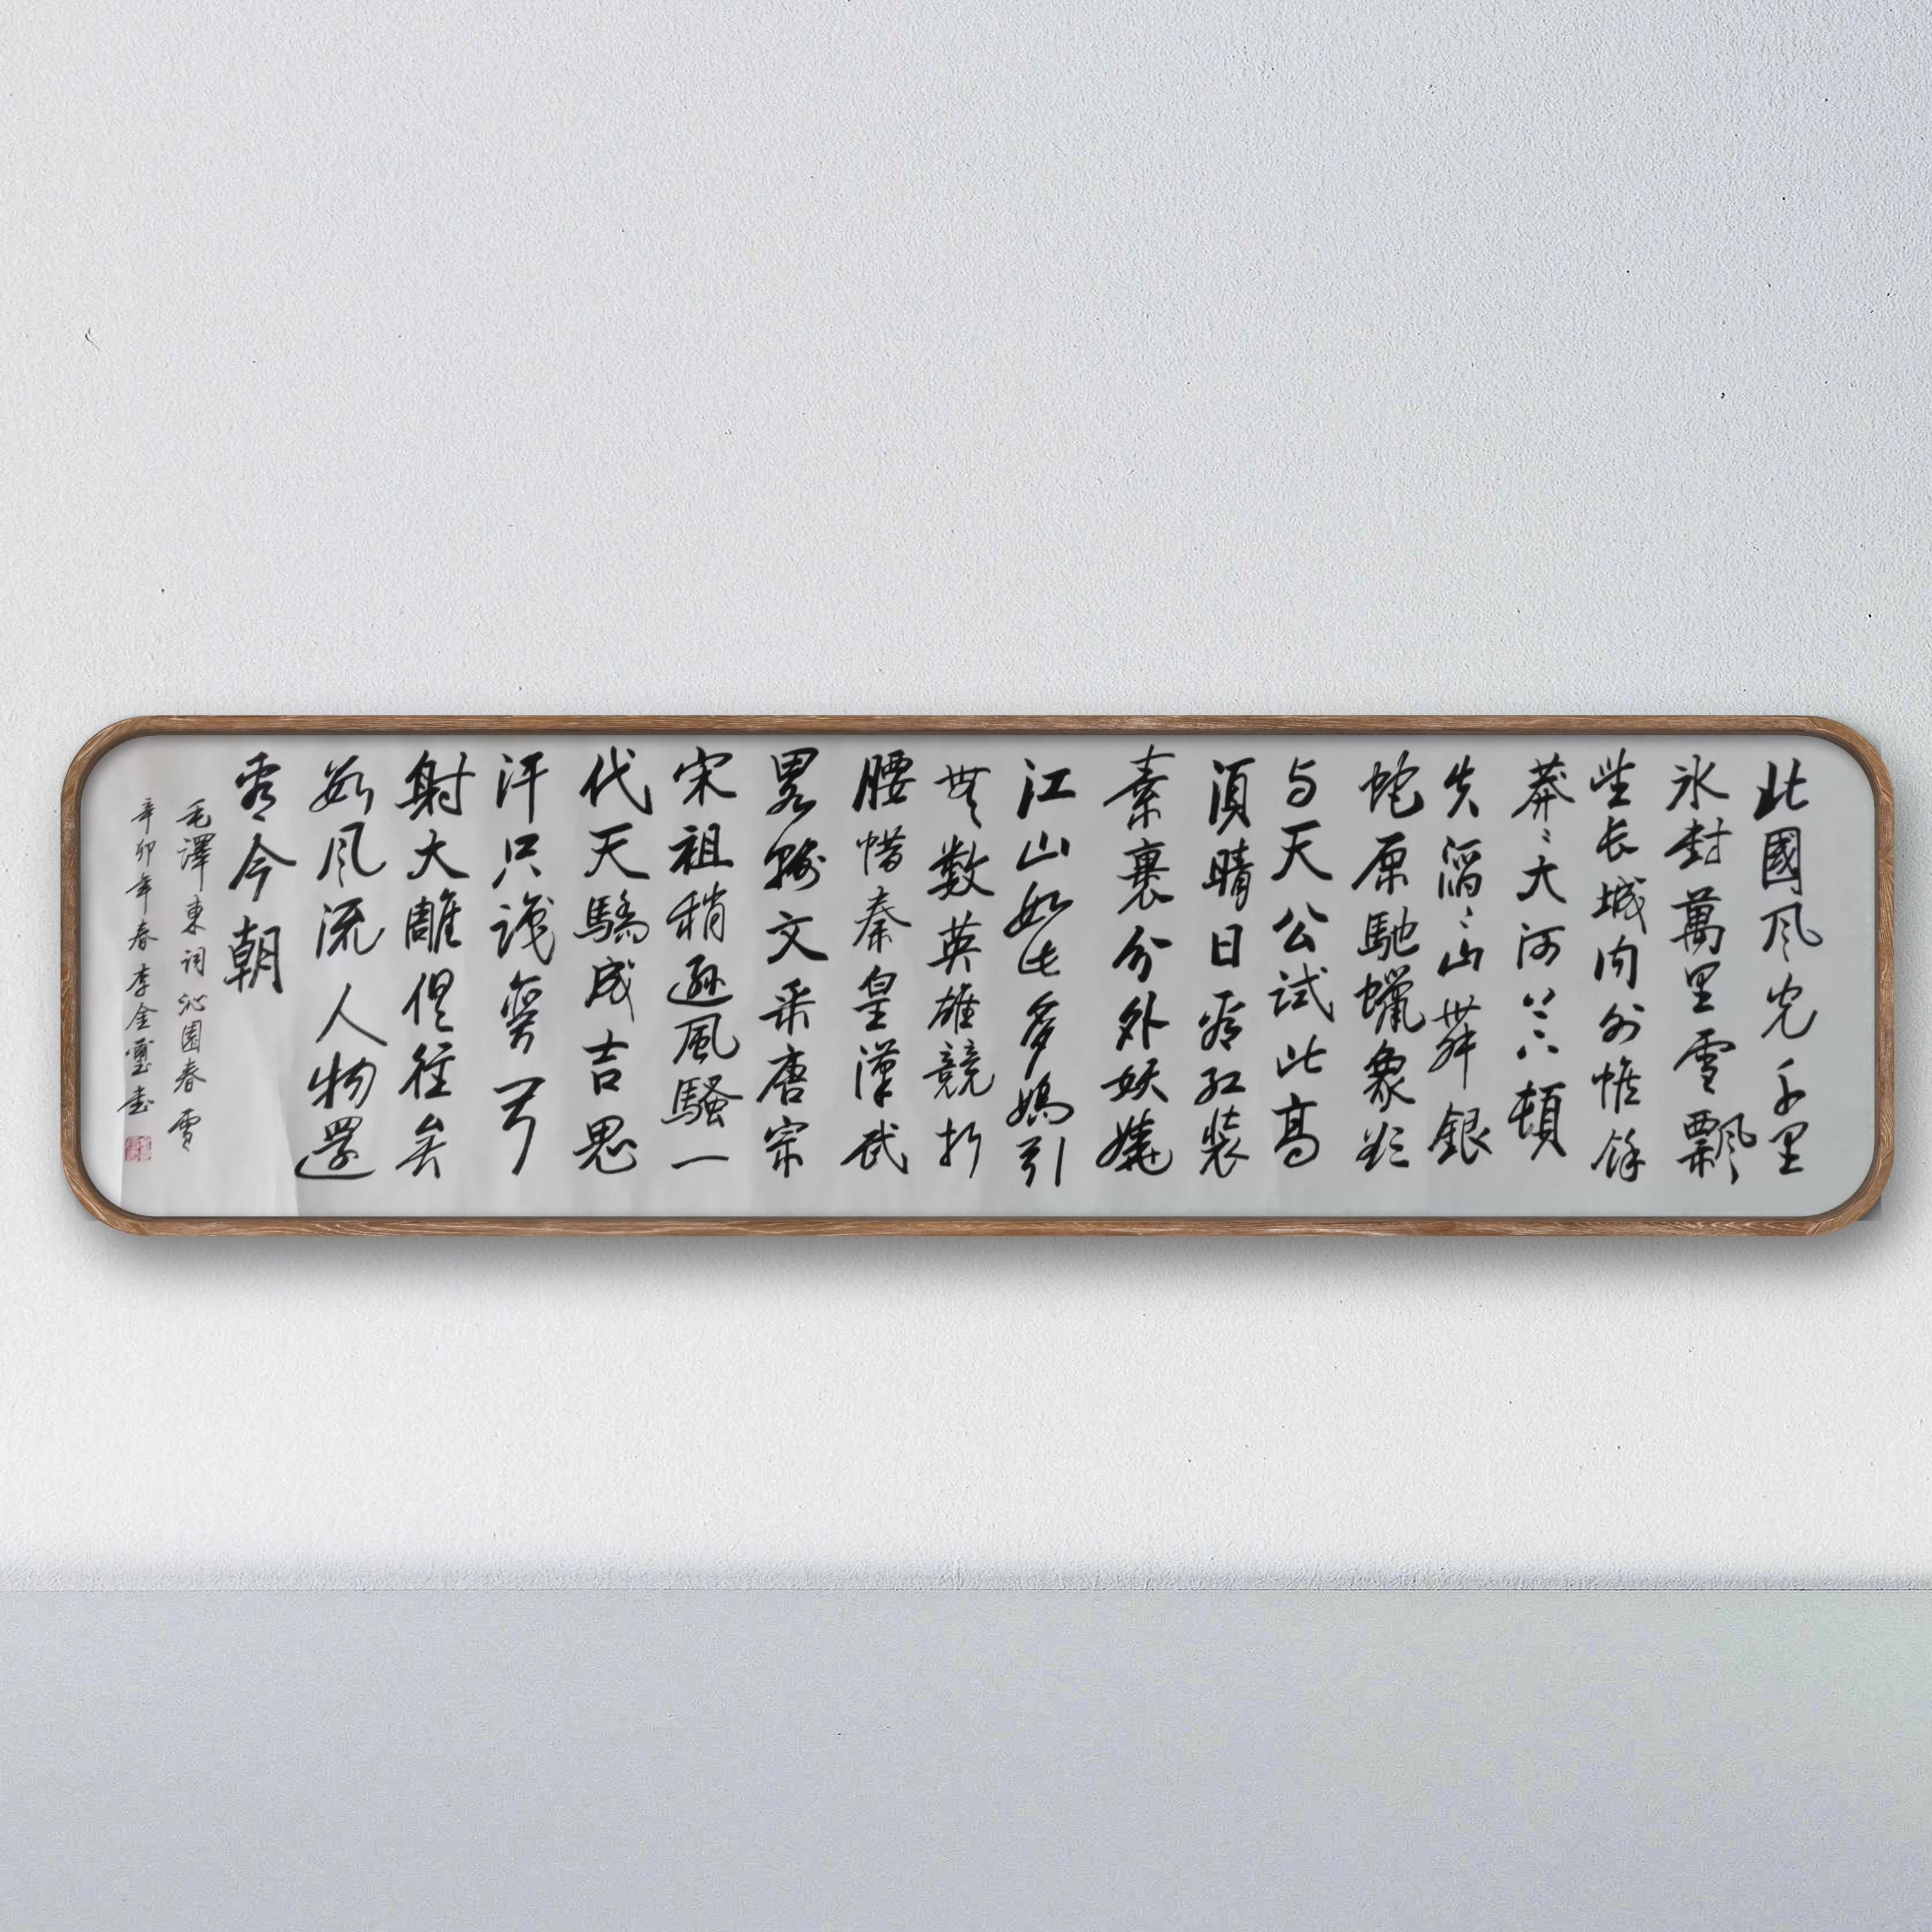 北國风光千里
冰封萬里雪飄
望长城内外惟餘
莽〻大河上下頓
失滔〻山舞銀
蛇原馳蠟象欲
与天公試比高
須晴日看红装
素裹分外妖嬈
江山如此多嬌引
無数英雄競折
腰惜秦皇漢武
畧輸文采唐宗
宋祖稍遜風騷一
代天驕成吉思
汗只識彎弓
射大雕俱往矣
数风流人物還
看今朝
毛澤東詞沁園春雪
辛卯年春李金璽书